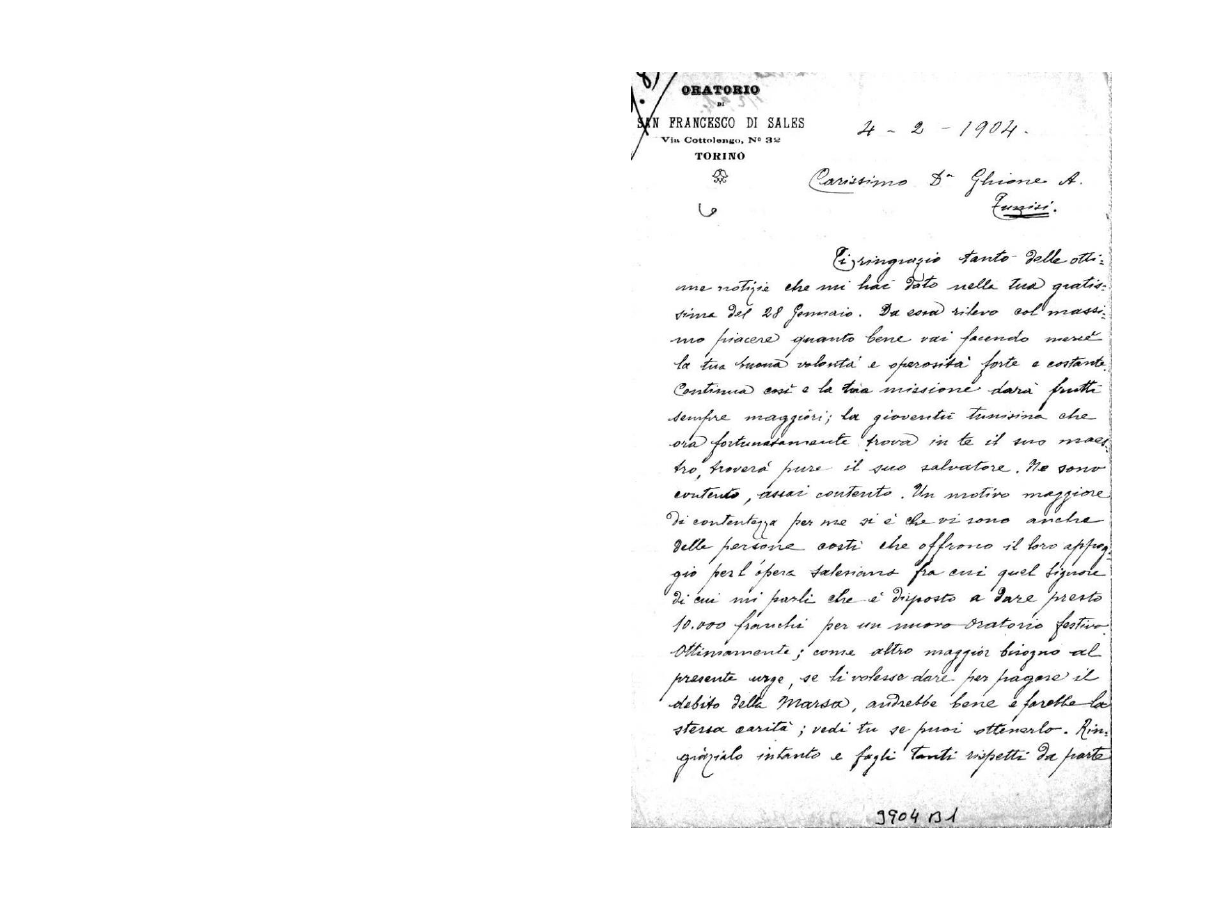 ORATORIO
DI
SAN FRANCESCO DI SALES
Via Cottolengo, Nº 32
TORINO
4 - 2 - 1904.
Carissimo Dⁿ Ghione A.
Tunisi.
Ti ringrazio tanto delle otti=
me notizie che mi hai dato nella tua gratis=
sima del 28 Gennaio. Da essa rilevo col massi=
mo piacere quanto bene vai facendo mercè
la tua buona volontà e operosità forte e costante.
Continua così e la tua missione darà frutti
sempre maggiori; la gioventù tunisina che
ora fortunatamente trova in te il suo maes=
tro, troverà pure il suo salvatore. Ne sono
contento, assai contento. Un motivo maggiore
di contentezza per me si è che vi sono anche
delle persone costì che offrono il loro appog=
gio per l'opera salesiana fra cui quel Signore
di cui mi parli che è disposto a dare presto
10.000 franchi per un nuovo oratorio festivo.
Ottimamente; come altro maggior bisogno al
presente urge, se li volesse dare per pagare il
debito della Marsa, andrebbe bene e farebbe la
stessa carità; vedi tu se puoi ottenerlo. Rin=
grazialo intanto e fagli tanti rispetti da parte
3904 B1